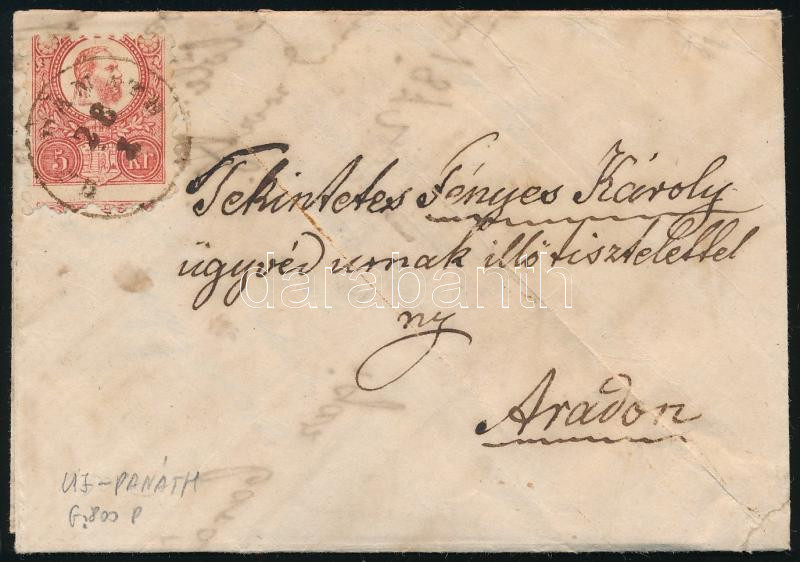 5 Kr
28
Tekintetes Fényes Károly
ügyvéd urnak illő tisztelettel
ny
Aradon
darabanth
UJ-PANÁTH